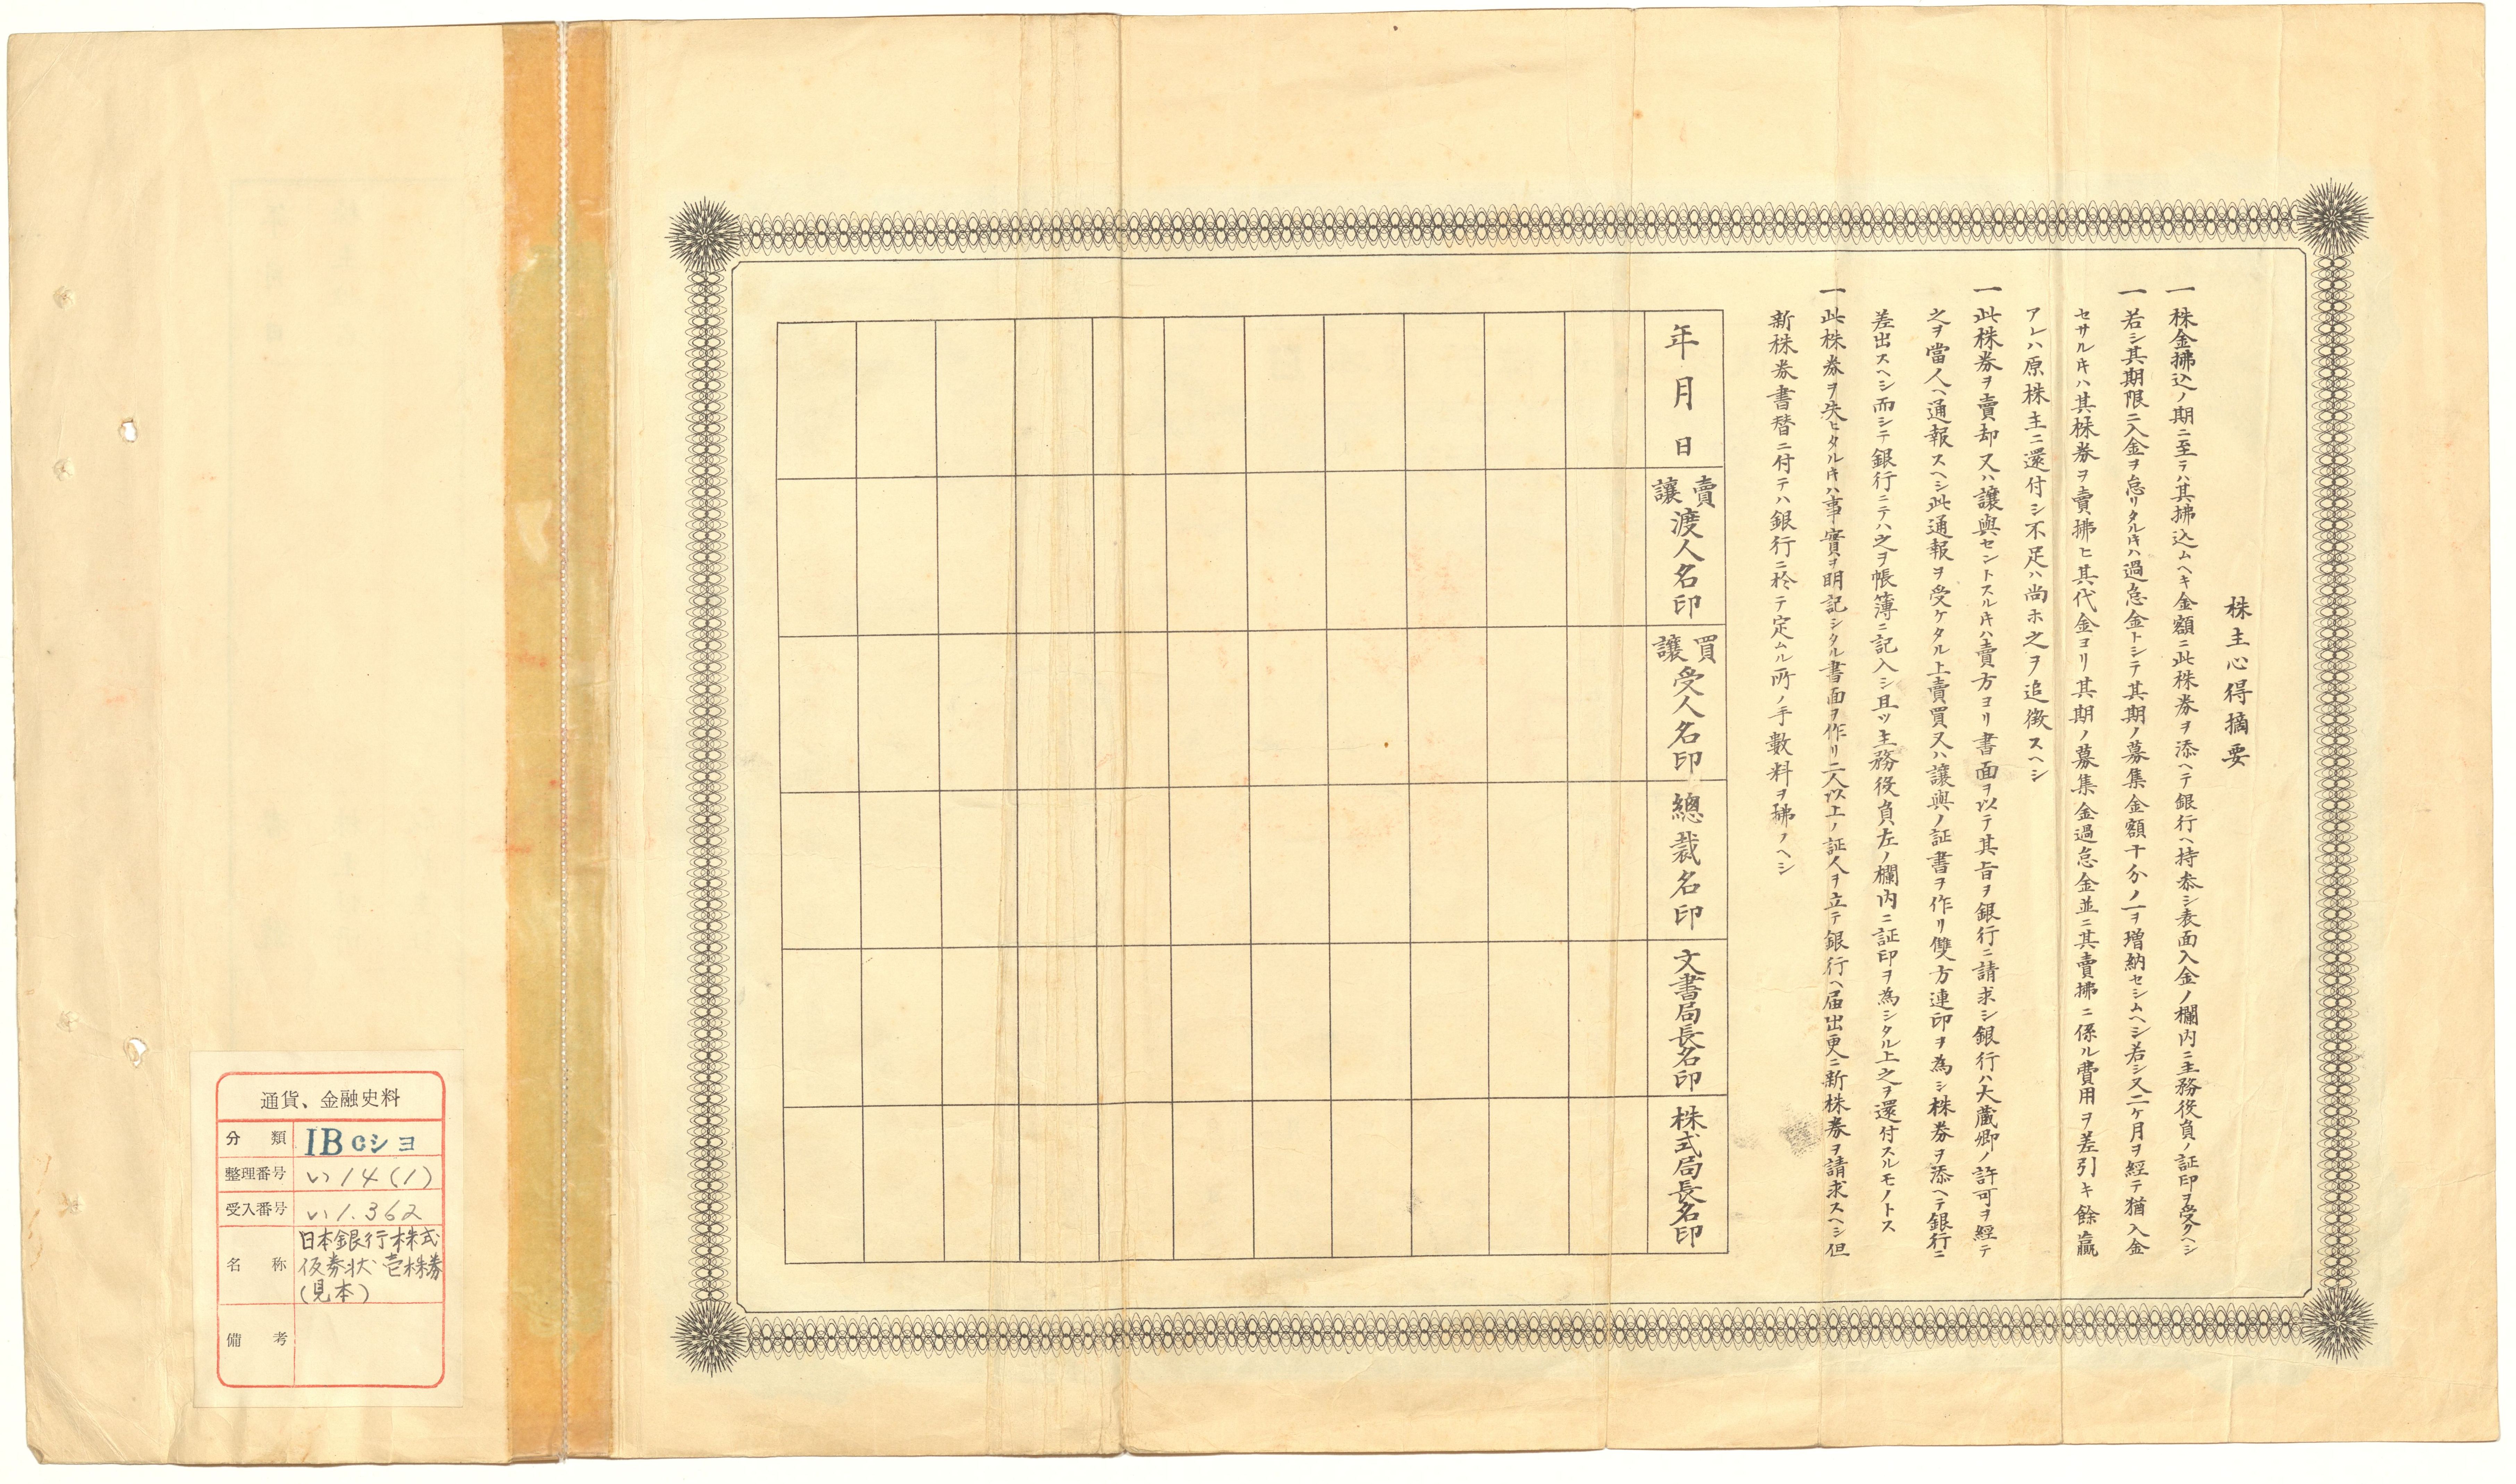 株主心得摘要
一 株金拂込ノ期ニ至テハ其拂込ムヘキ金額ニ此株券ヲ添ヘテ銀行ヘ持参シ表面入金ノ欄内ニ主務役員ノ証印ヲ受クヘシ
一 若シ其期限ニ入金ヲ怠リタルキハ過怠金トシテ其期ノ募集金額千分ノ一ヲ増納セシムヘシ若シ又二ケ月ヲ経テ猶入金
セサルキハ其株券ヲ賣拂ヒ其代金ヨリ其期ノ募集金過怠金並ニ其賣拂ニ係ル費用ヲ差引キ餘贏
アレハ原株主ニ還付シ不足ハ尚ホ之ヲ追徴スヘシ
一 此株券ヲ賣却又ハ讓與セントスルキハ賣方ヨリ書面ヲ以テ其旨ヲ銀行ニ請求シ銀行ハ大藏卿ノ許可ヲ經テ
之ヲ當人ヘ通報スヘシ此通報ヲ受ケタル上賣買又ハ讓與ノ証書ヲ作リ雙方連印ヲ為シ株券ヲ添ヘテ銀行ニ
差出スヘシ而シテ銀行ニテハ之ヲ帳簿ニ記入シ且ツ主務役員左ノ欄内ニ証印ヲ為シタル上之ヲ還付スルモノトス
一 此株券ヲ失ヒタルキハ事實ヲ明記シタル書面ヲ作リ二人以上ノ証人ヲ立テ銀行ヘ届出更ニ新株券ヲ請求スヘシ但
新株券書替ニ付テハ銀行ニ於テ定ムル所ノ手數料ヲ拂フヘシ
年月日
賣讓渡人名印
買讓受人名印
總裁名印
文書局長名印
株式局長名印
通貨、金融史料
分類 IBCショ
整理番号 い14(1)
受入番号 い1.362
名称 日本銀行株式
仮券状 壱株券
(見本)
備考